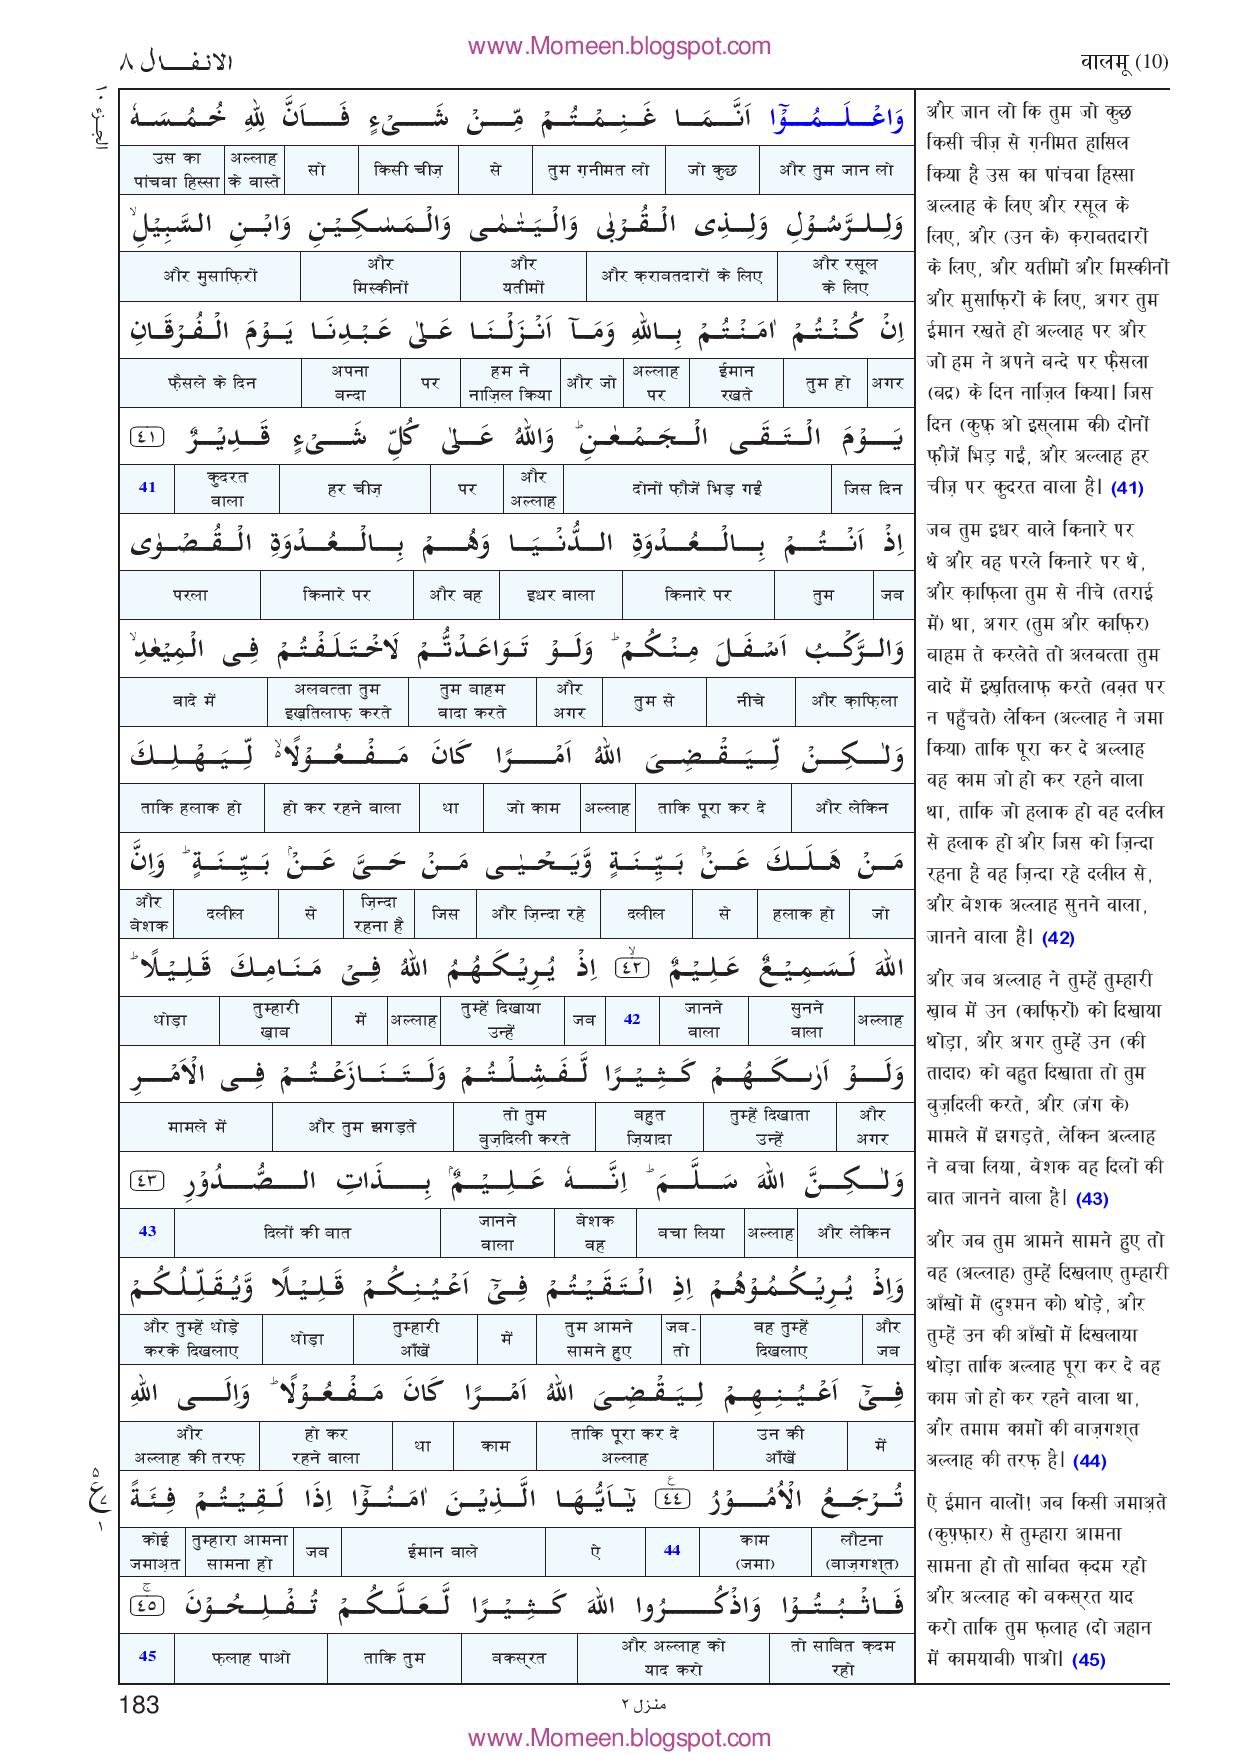 www.Momeen.blogspot.com
الانفال ٨
वालमू (10)
الجزء ١٠
وَاعْلَمُوْۤا اَنَّمَا غَنِمْتُمْ مِّنْ شَیْءٍ فَاَنَّ لِلّٰهِ خُمُسَهٗ
और तुम जान लो | जो कुछ | तुम ग़नीमत लो | से | किसी चीज़ | सो | अल्लाह के वास्ते | उस का पांचवा हिस्सा
وَلِلرَّسُوْلِ وَلِذِی الْقُرْبٰی وَالْیَتٰمٰی وَالْمَسٰكِیْنِ وَابْنِ السَّبِیْلِ ۙ
और रसूल के लिए | और क़राबतदारों के लिए | और यतीमों | और मिस्कीनों | और मुसाफ़िरों
اِنْ كُنْتُمْ اٰمَنْتُمْ بِاللّٰهِ وَمَاۤ اَنْزَلْنَا عَلٰی عَبْدِنَا یَوْمَ الْفُرْقَانِ
अगर | तुम हो | ईमान रखते | अल्लाह पर | और जो | हम ने नाज़िल किया | पर | अपना बन्दा | फ़ैसले के दिन
یَوْمَ الْتَقَی الْجَمْعٰنِ ؕ وَاللّٰهُ عَلٰی كُلِّ شَیْءٍ قَدِیْرٌ ٤١
जिस दिन | दोनों फ़ौजें भिड़ गईं | और अल्लाह | पर | हर चीज़ | कुदरत वाला | 41
اِذْ اَنْتُمْ بِالْعُدْوَةِ الدُّنْیَا وَهُمْ بِالْعُدْوَةِ الْقُصْوٰی
जब | तुम | किनारे पर | इधर वाला | और वह | किनारे पर | परला
وَالرَّكْبُ اَسْفَلَ مِنْكُمْ ؕ وَلَوْ تَوَاعَدْتُّمْ لَاخْتَلَفْتُمْ فِی الْمِیْعٰدِ ۙ
और क़ाफ़िला | नीचे | तुम से | और अगर | तुम बाहम वादा करते | अलबत्ता तुम इख़तिलाफ़ करते | वादे में
وَلٰكِنْ لِّیَقْضِیَ اللّٰهُ اَمْرًا كَانَ مَفْعُوْلًا ۙ۬ لِّیَهْلِكَ
और लेकिन | ताकि पूरा कर दे | अल्लाह | जो काम | था | हो कर रहने वाला | ताकि हलाक हो
مَنْ هَلَكَ عَنْۢ بَیِّنَةٍ وَّیَحْیٰی مَنْ حَیَّ عَنْۢ بَیِّنَةٍ ؕ وَاِنَّ
जो | हलाक हो | से | दलील | और ज़िन्दा रहे | जिस | ज़िन्दा रहना है | से | दलील | और बेशक
اللّٰهَ لَسَمِیْعٌ عَلِیْمٌ ٤٢ۙ اِذْ یُرِیْكَهُمُ اللّٰهُ فِیْ مَنَامِكَ قَلِیْلًا ؕ
अल्लाह | सुनने वाला | जानने वाला | 42 | जब | तुम्हें दिखाया उन्हें | अल्लाह | में | तुम्हारी ख़ाब | थोड़ा
وَلَوْ اَرٰىكَهُمْ كَثِیْرًا لَّفَشِلْتُمْ وَلَتَنَازَعْتُمْ فِی الْاَمْرِ
और अगर | तुम्हें दिखाता उन्हें | बहुत ज़ियादा | तो तुम बुज़दिली करते | और तुम झगड़ते | मामले में
وَلٰكِنَّ اللّٰهَ سَلَّمَ ؕ اِنَّهٗ عَلِیْمٌۢ بِذَاتِ الصُّدُوْرِ ٤٣
और लेकिन | अल्लाह | बचा लिया | बेशक वह | जानने वाला | दिलों की बात | 43
وَاِذْ یُرِیْكُمُوْهُمْ اِذِ الْتَقَیْتُمْ فِیْۤ اَعْیُنِكُمْ قَلِیْلًا وَّیُقَلِّلُكُمْ
और जब | वह तुम्हें दिखलाए | जब-तो | तुम आमने सामने हुए | में | तुम्हारी आँखें | थोड़ा | और तुम्हें थोड़े करके दिखलाए
فِیْۤ اَعْیُنِهِمْ لِیَقْضِیَ اللّٰهُ اَمْرًا كَانَ مَفْعُوْلًا ؕ وَاِلَی اللّٰهِ
में | उन की आँखें | ताकि पूरा कर दे अल्लाह | काम | था | हो कर रहने वाला | और अल्लाह की तरफ़
تُرْجَعُ الْاُمُوْرُ ٤٤ۧ یٰۤاَیُّهَا الَّذِیْنَ اٰمَنُوْۤا اِذَا لَقِیْتُمْ فِئَةً
लौटना (बाज़गश्त) | काम (जमा) | 44 | ऐ | ईमान वाले | जब | तुम्हारा आमना सामना हो | कोई जमाअ़त
فَاثْبُتُوْا وَاذْكُرُوا اللّٰهَ كَثِیْرًا لَّعَلَّكُمْ تُفْلِحُوْنَ ٤٥ۚ
तो साबित क़दम रहो | और अल्लाह को याद करो | बकस्रत | ताकि तुम | फ़लाह पाओ | 45
और जान लो कि तुम जो कुछ
किसी चीज़ से ग़नीमत हासिल
किया है उस का पांचवा हिस्सा
अल्लाह के लिए और रसूल के
लिए, और (उन के) क़राबतदारों
के लिए, और यतीमों और मिस्कीनों
और मुसाफ़िरों के लिए, अगर तुम
ईमान रखते हो अल्लाह पर और
जो हम ने अपने बन्दे पर फ़ैसला
(बद्र) के दिन नाज़िल किया। जिस
दिन (कुफ़ ओ इस्लाम की) दोनों
फ़ौजें भिड़ गईं, और अल्लाह हर
चीज़ पर कुदरत वाला है। (41)
जब तुम इधर वाले किनारे पर
थे और वह परले किनारे पर थे,
और क़ाफ़िला तुम से नीचे (तराई
में) था, अगर (तुम और काफ़िर)
बाहम ते करलेते तो अलबत्ता तुम
वादे में इख़तिलाफ़ करते (वक़्त पर
न पहुँचते) लेकिन (अल्लाह ने जमा
किया) ताकि पूरा कर दे अल्लाह
वह काम जो हो कर रहने वाला
था, ताकि जो हलाक हो वह दलील
से हलाक हो और जिस को ज़िन्दा
रहना है वह ज़िन्दा रहे दलील से,
और बेशक अल्लाह सुनने वाला,
जानने वाला है। (42)
और जब अल्लाह ने तुम्हें तुम्हारी
ख़ाब में उन (काफ़िरों) को दिखाया
थोड़ा, और अगर तुम्हें उन (की
तादाद) को बहुत दिखाता तो तुम
बुज़दिली करते, और (जंग के)
मामले में झगड़ते, लेकिन अल्लाह
ने बचा लिया, बेशक वह दिलों की
बात जानने वाला है। (43)
और जब तुम आमने सामने हुए तो
वह (अल्लाह) तुम्हें दिखलाए तुम्हारी
आँखों में (दुश्मन को) थोड़े, और
तुम्हें उन की आँखों में दिखलाया
थोड़ा ताकि अल्लाह पूरा कर दे वह
काम जो हो कर रहने वाला था,
और तमाम कामों की बाज़गश्त
अल्लाह की तरफ़ है। (44)
ऐ ईमान वालों! जब किसी जमाअ़त
(कुफ़्फ़ार) से तुम्हारा आमना
सामना हो तो साबित क़दम रहो
और अल्लाह को बकस्रत याद
करो ताकि तुम फ़लाह (दो जहान
में कामयाबी) पाओ। (45)
٥
ع
١
183
منزل ٢
www.Momeen.blogspot.com